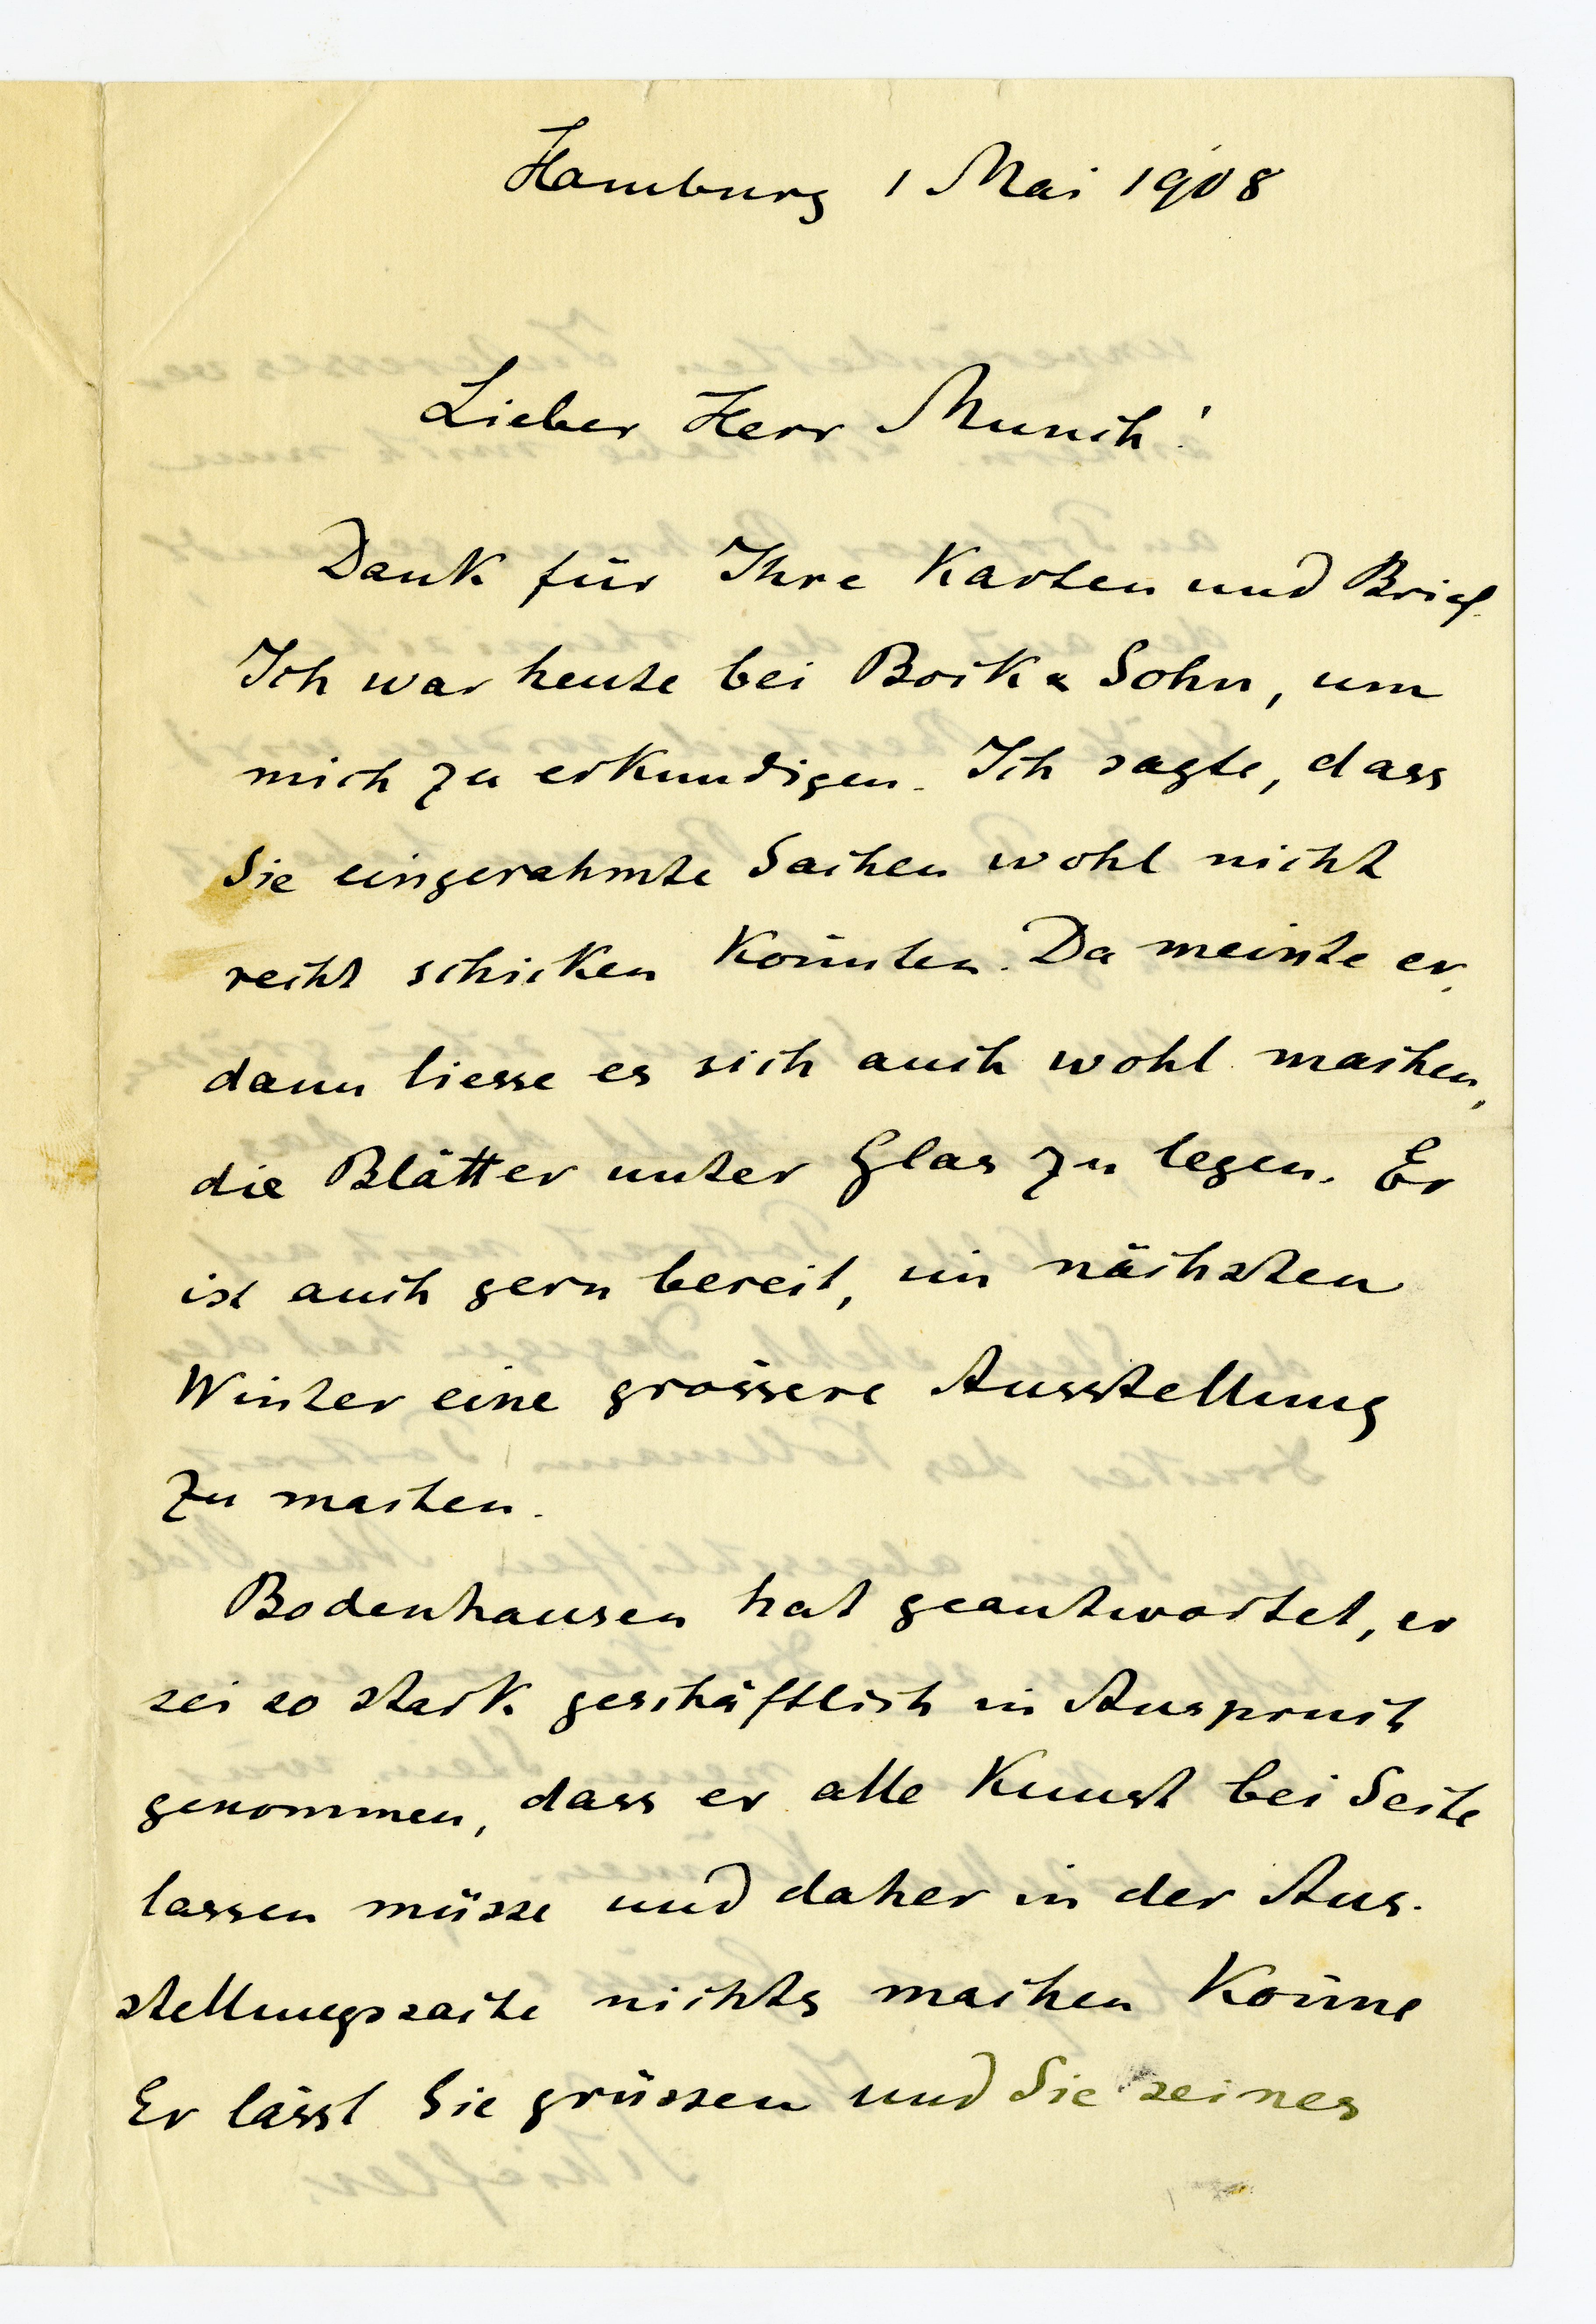 Hamburg 1 Mai 1908
Lieber Herr Munch!
Dank für Ihre Karten und Brief.
Ich war heute bei Bock & Sohn, um
mich zu erkundigen. Ich sagte, dass
Sie eingerahmte Sachen wohl nicht
recht schicken könnten. Da meinte er,
dann liesse es sich auch wohl machen,
die Blätter unter Glas zu legen. Er
ist auch gern bereit, im nächsten
Winter eine grössere Ausstellung
zu machen.
Bodenhausen hat geantwortet, er
sei so stark geschäftlich in Anspruch
genommen, dass er alle Kunst bei Seite
lassen müsse und daher in der Aus-
stellungssache nichts machen könne
Er lässt Sie grüssen und Sie seines